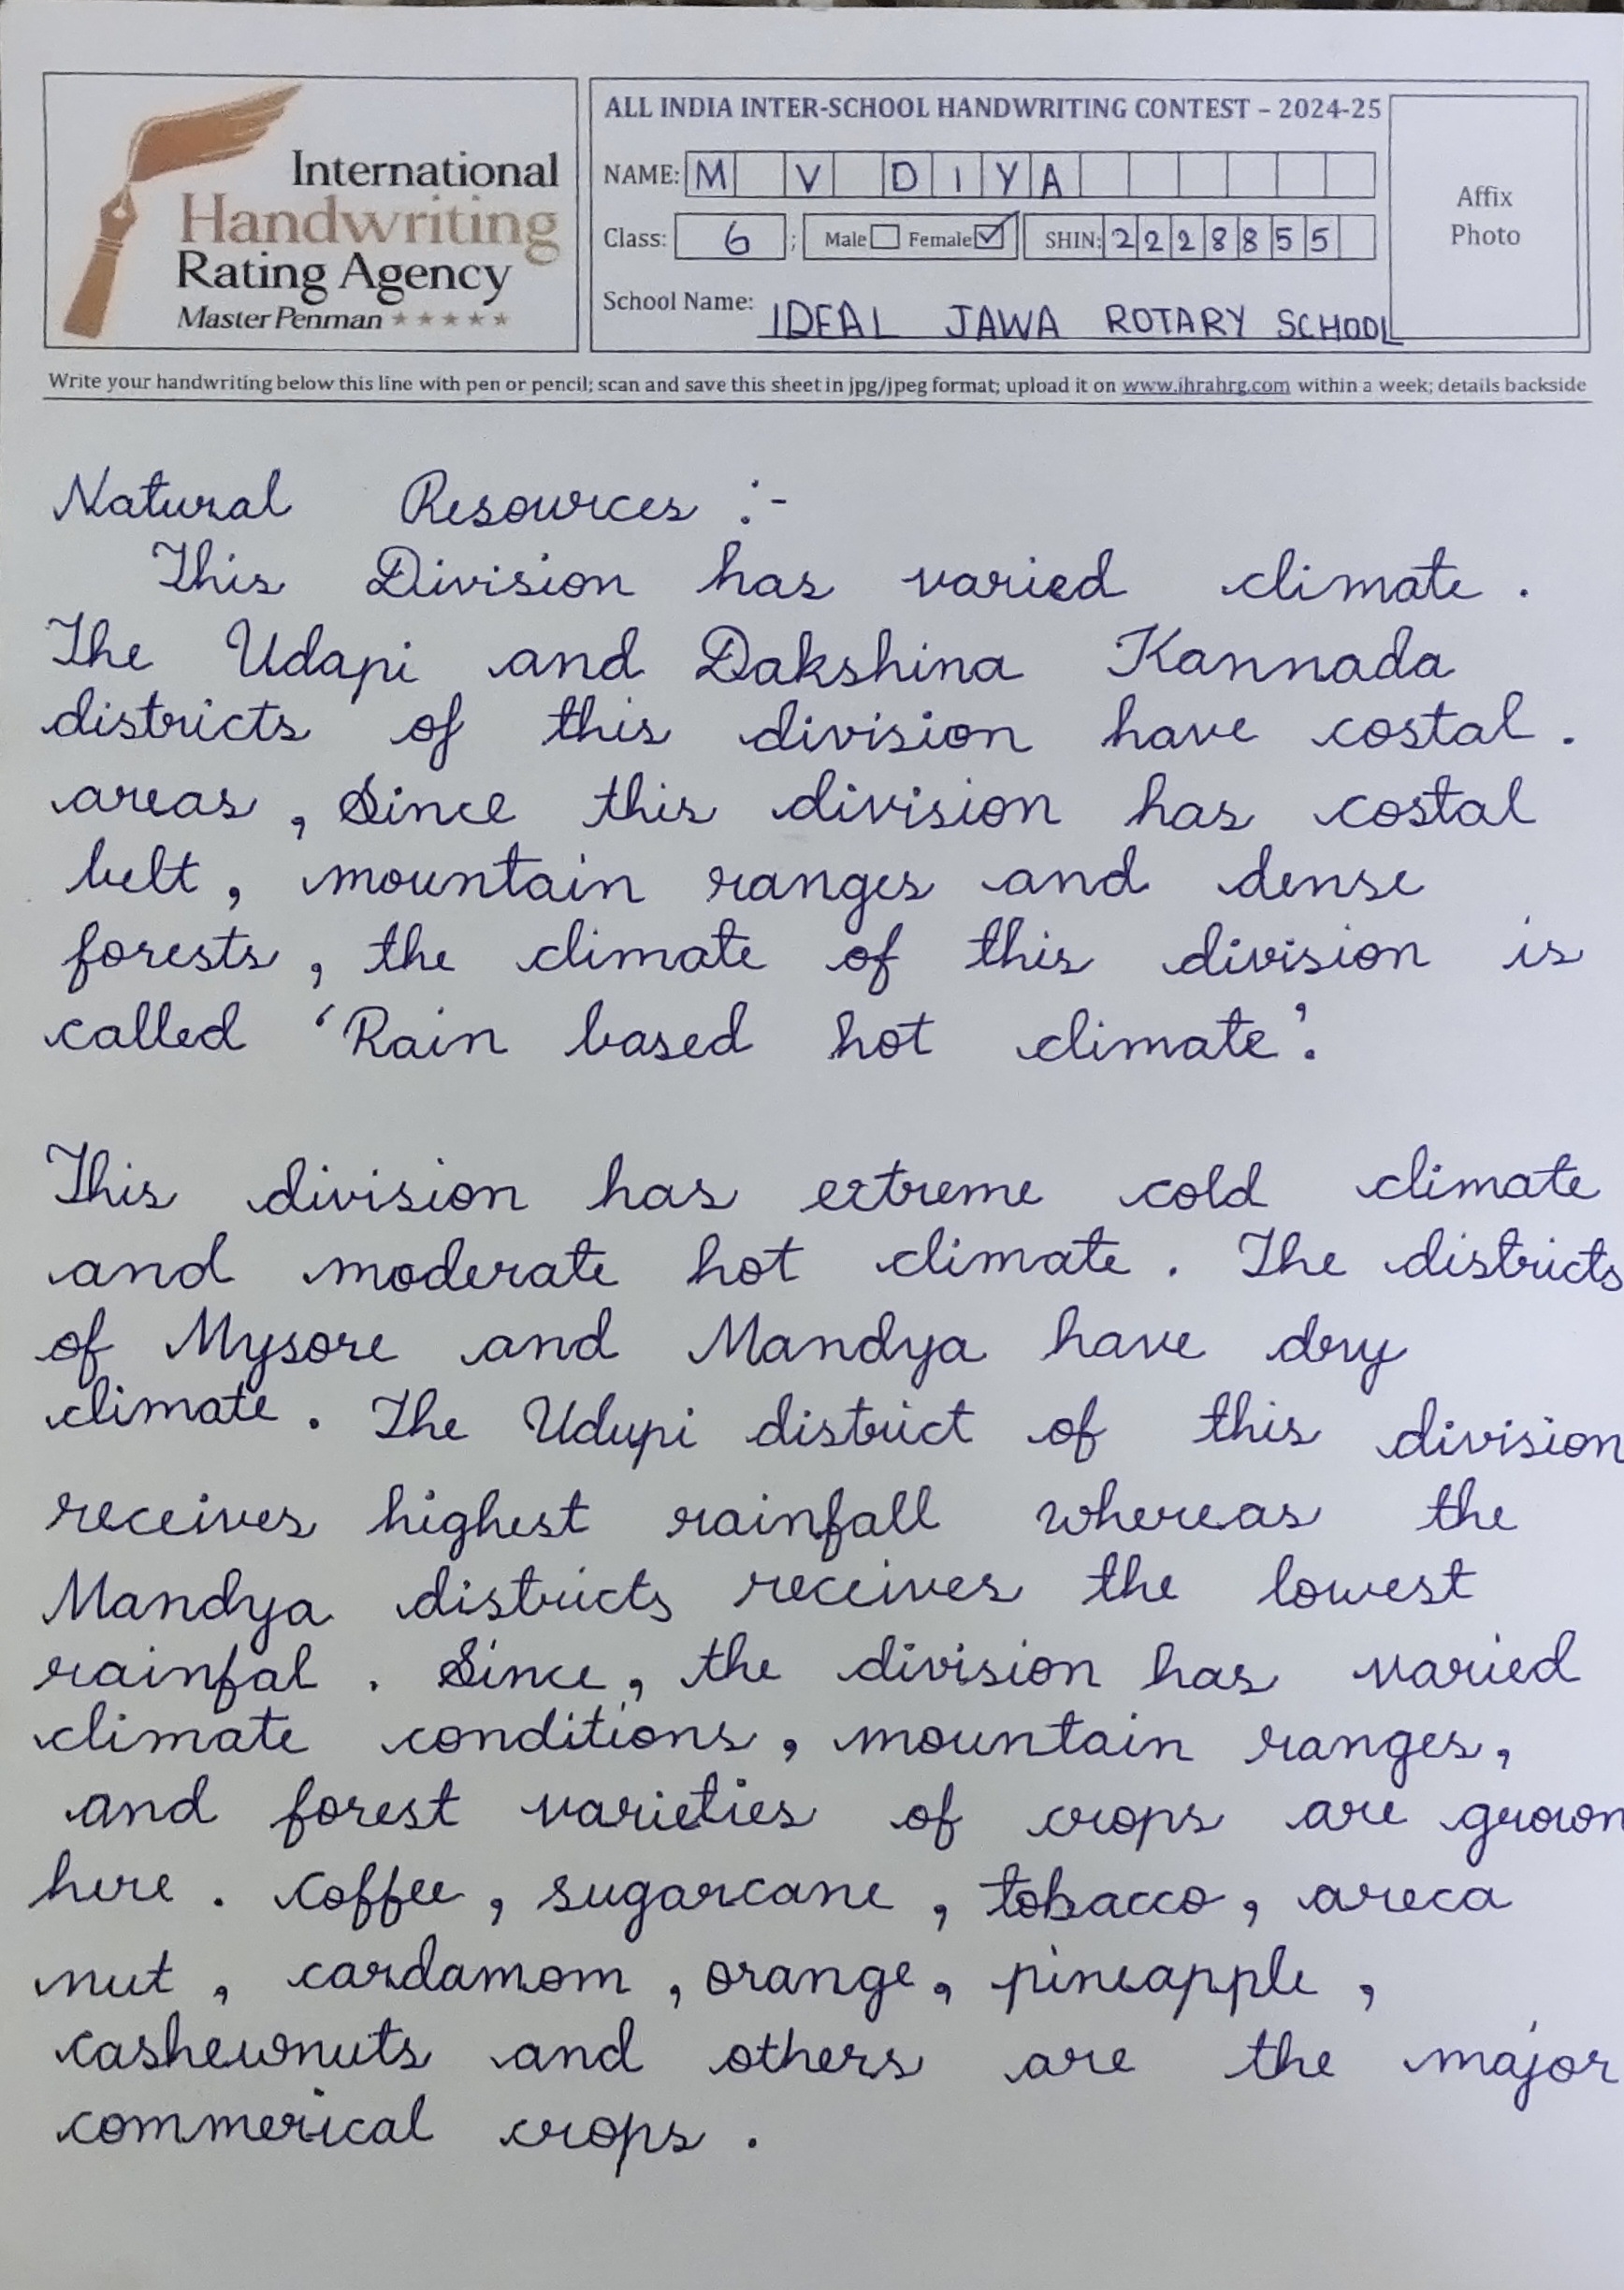 International
Handwriting
Rating Agency
Master Penman ★★★★★
ALL INDIA INTER-SCHOOL HANDWRITING CONTEST – 2024-25
NAME: M V DIYA
Class: 6 ; Male Female ✓ SHIN: 2228855
School Name: IDEAL JAWA ROTARY SCHOOL
Affix
Photo
Write your handwriting below this line with pen or pencil; scan and save this sheet in jpg/jpeg format; upload it on www.ihrahrg.com within a week; details backside
Natural Resources :-
This Division has varied climate .
The Udapi and Dakshina Kannada
districts of this division have costal .
areas , Since this division has costal
belt , mountain ranges and dense
forests , the climate of this division is
called ‘Rain based hot climate’.
This division has extreme cold climate
and moderate hot climate . The districts
of Mysore and Mandya have dry
climate . The Udupi district of this division
receives highest rainfall whereas the
Mandya districts receives the lowest
rainfal . Since , the division has varied
climate conditions , mountain ranges ,
and forest varieties of crops are grown
here . Coffee , sugarcane , tobacco , areca
nut , cardamom , orange , pineapple ,
cashewnuts and others are the major
commerical crops .